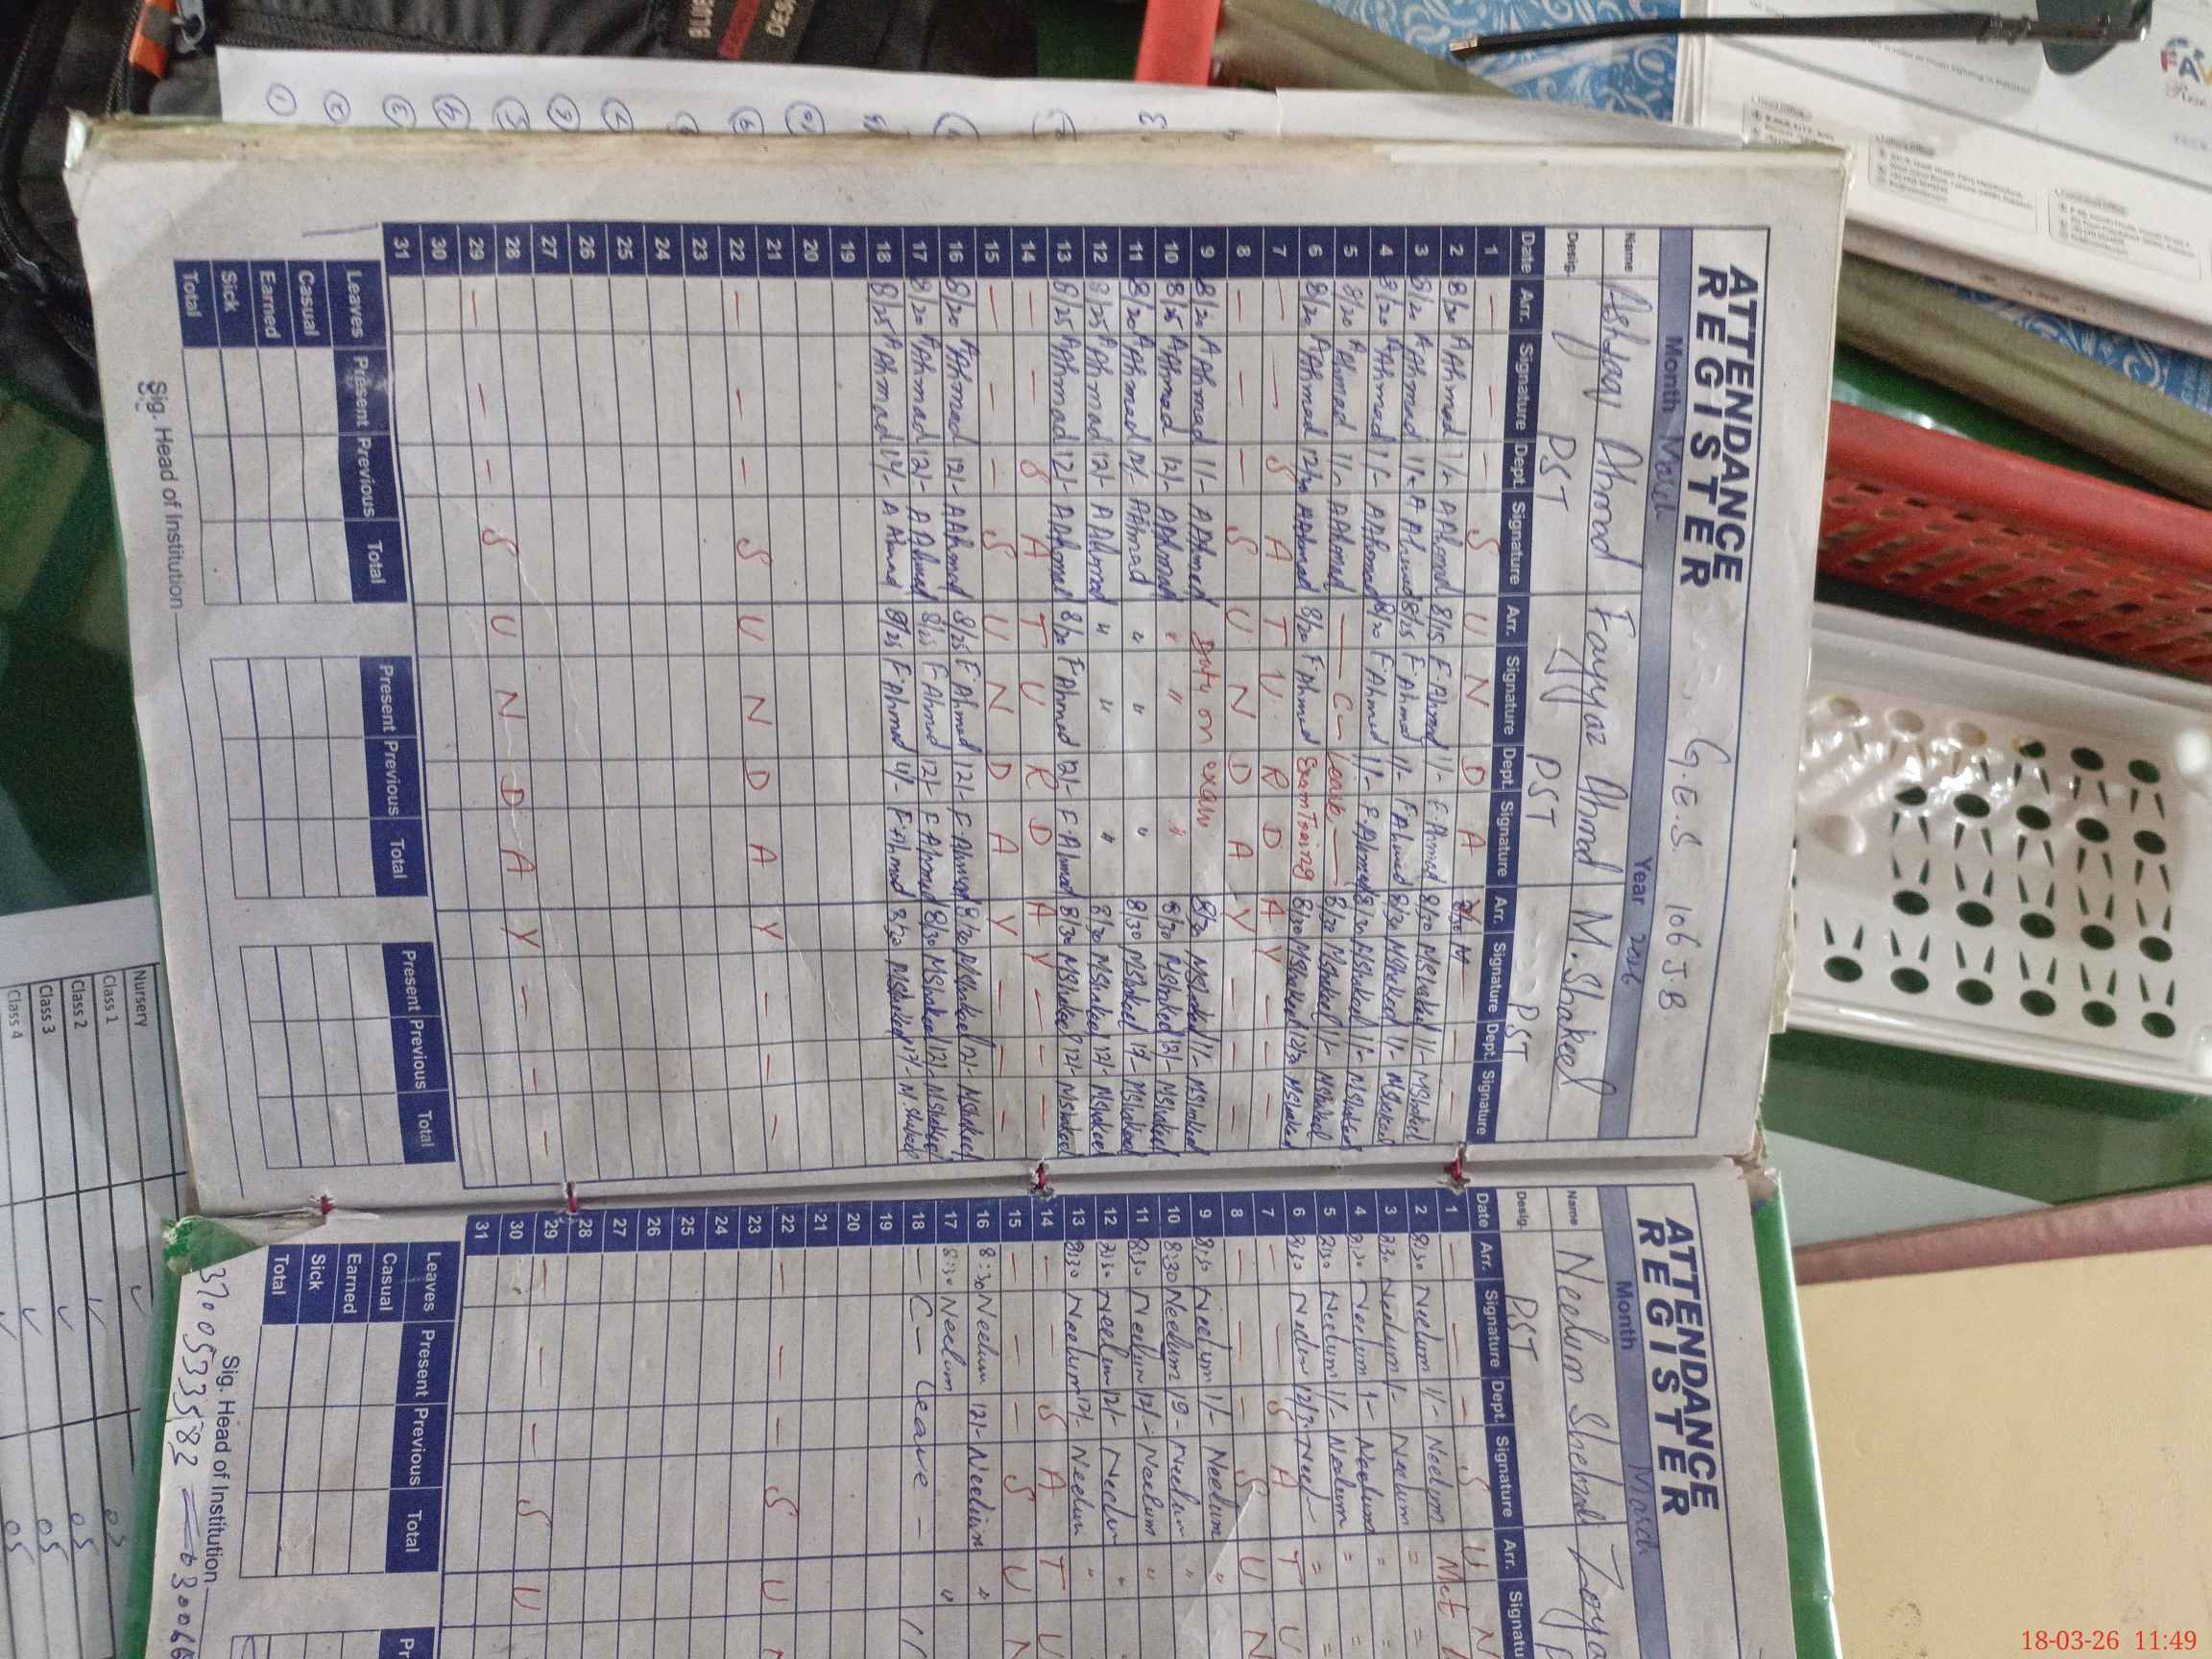 ATTENDANCE
REGISTER
G.E.S. 106 J.B
Month March Year 2026
Name Ashfaq Ahmad Fayyaz Ahmad M. Shakeel
Desig. PST PST PST
Date Arr. Signature Dept Signature Arr. Signature Dept. Signature Arr. Signature Dept. Signature
1 — — — S U N D A — —
2 8/20 A Ahmed 1/- A Ahmed 8/15 F. Ahmed 1/- F. Ahmed 8/30 MShakeel 1/- MShakeel
3 8/20 A Ahmed 1/- A Ahmed 8/25 F Ahmed 1/- F Ahmed 8/30 MShakeel 1/- MShakeel
4 8/20 A Ahmed 1/- A Ahmed 8/20 F Ahmed 1/- F Ahmed 8/30 MShakeel 1/- MShakeel
5 8/20 A Ahmed 1/- A Ahmed — C — Leave — 8/30 MShakeel 1/- MShakeel
6 8/20 A Ahmed 12/30 A Ahmed 8/20 F Ahmed 8/30 MShakeel 12/30 MShakeel
7 — — S A T U R D A Y — — —
8 — — — S U N D A Y — — —
9 8/20 A Ahmad 11/- A Ahmed Duty on exam 8/30 MShakeel 11/- MShakeel
10 8/25 A Ahmed 12/- A Ahmad " " " 8/30 MShakeel 12/- MShakeel
11 8/20 A Ahmed 12/- A Ahmad " " " 8/30 MShakeel 12/- MShakeel
12 8/25 A Ahmad 12/- A Ahmad " " " 8/30 MShakeel 12/- MShakeel
13 8/25 A Ahmad 12/- A Ahmed 8/20 F Ahmad 12/- F. Ahmad 8/30 MShakeel 12/- MShakeel
14 — — S A T U R D A Y — — —
15 — — — S U N D A Y — — —
16 8/20 A Ahmed 12/- A Ahmed 8/25 F Ahmed 12/- F. Ahmad 8/30 MShakeel 12/- MShakeel
17 8/20 A Ahmad 12/- A Ahmed 8/25 F Ahmed 12/- F Ahmed 8/30 MShakeel 12/- MShakeel
18 8/25 A Ahmad 14/- A Ahmad 8/25 F. Ahmed F. Ahmad 8/30 MShakeel 12/- M. Shakeel
19
20
21
22 — — — S U N D A Y — — —
23
24
25
26
27
28
29 — — — S U N D A Y — — —
30
31
Leaves Present Previous Total Present Previous Total Present Previous Total
Casual
Earned
Sick
Total
Sig. Head of Institution
ATTENDANCE
REGISTER
Month March
Name Neelum Shehzadi Zoya
Desig. PST
Date Arr. Signature Dept. Signature Arr. Signatu
1 — — — S U N
2 8:30 Neelum 1/- Neelum
3 8:30 Neelum 1/- Neelum =
4 8:30 Neelum 1/- Neelum = =
5 8:30 Neelum 1/- Neelum = =
6 8:30 Neelum 12/30 Neel = =
7 — — S A T U
8 — — — S U N
9 8:30 Neelum 1/- Neelum "
10 8:30 Neelum Neelum "
11 8:30 Neelum 12/- Neelum "
12 8:30 Neelum 12/- Neelum "
13 8:30 Neelum 12/- Neelum "
14 — — S A T U
15 — — — S U N
16 8:30 Neelum 12/- Neelum "
17 8:30 Neelum "
18 — C — Leave —
19
20
21
22 — — — S U
23
24
25
26
27
28
29 — — — S U
30
31
Leaves Present Previous Total Pr
Casual
Earned
Sick
Total
Sig. Head of Institution
Nursery
Class 1
Class 2 05
Class 3 05
Class 4 05
18-03-26 11:49